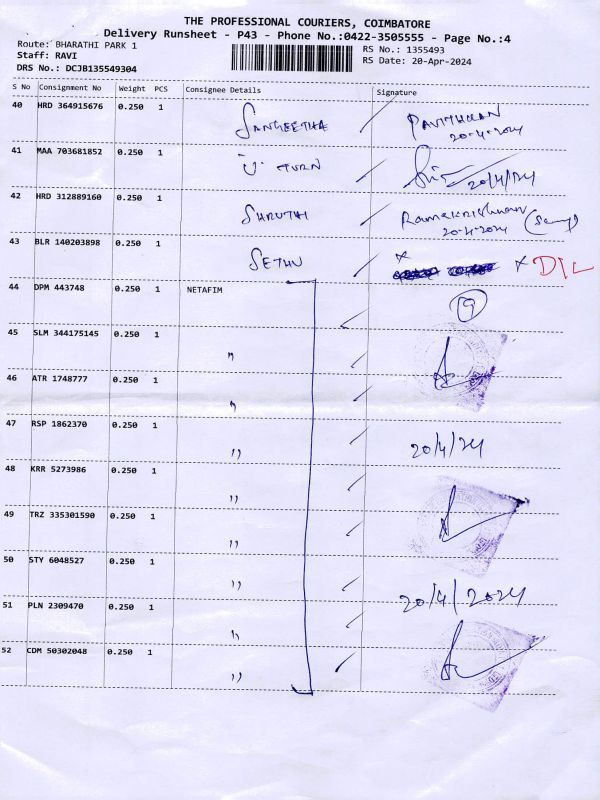 THE PROFESSIONAL COURIERS, COIMBATORE
Delivery Runsheet - P43 - Phone No.:0422-3505555 - Page No.:4
Route: BHARATHI PARK 1
RS No.: 1355493
Staff: RAVI
RS Date: 20-Apr-2024
DRS No.: DCJB135549304
S No Consignment No Weight PCS Consignee Details Signature
40 HRD 364915676 0.250 1 SANGEETHA PAVITHRAN
20-4-2024
41 MAA 703681852 0.250 1 U TURN 20/4/24
42 HRD 312889160 0.250 1 SHRUTHI Ramakrishnan
20-4-2024
43 BLR 140203898 0.250 1 SETHU x x D/L
44 DPM 443748 0.250 1 NETAFIM 9
45 SLM 344175145 0.250 1 "
46 ATR 1748777 0.250 1 "
47 RSP 1862370 0.250 1 " 20/4/24
48 KRR 5273986 0.250 1 "
49 TRZ 335301590 0.250 1 "
50 STY 6048527 0.250 1 " 20/4/2024
51 PLN 2309470 0.250 1 "
52 CDM 50302048 0.250 1 "